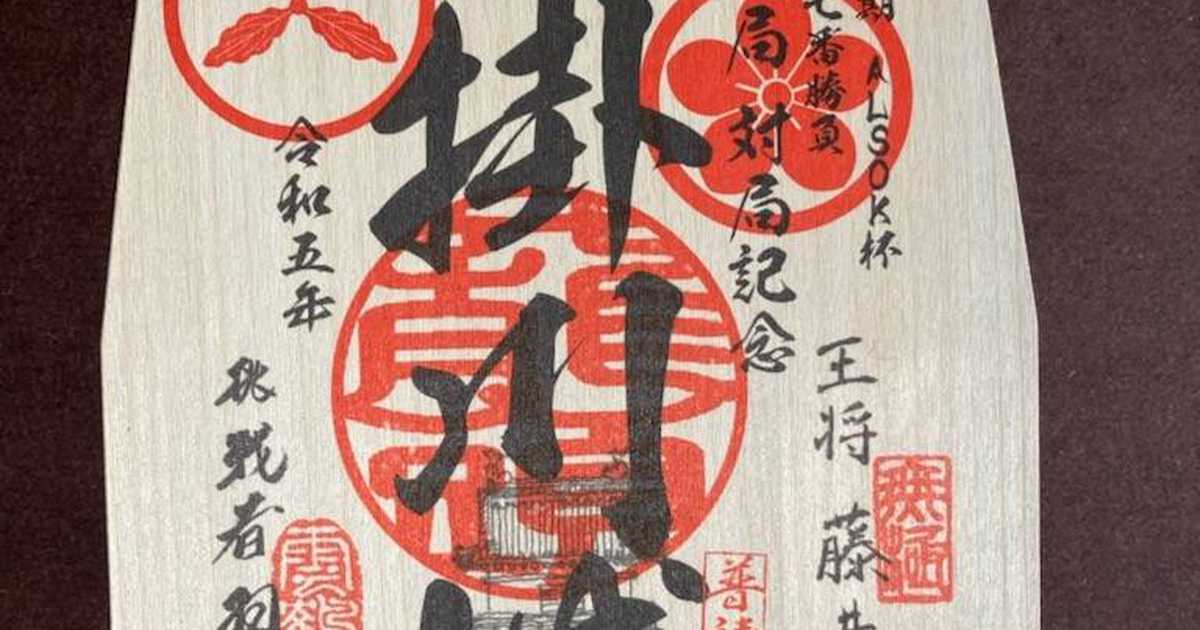 期 ALSOK杯
七番勝負
局対局記念
王将 藤井
掛川城
令和五年
挑戦者 羽